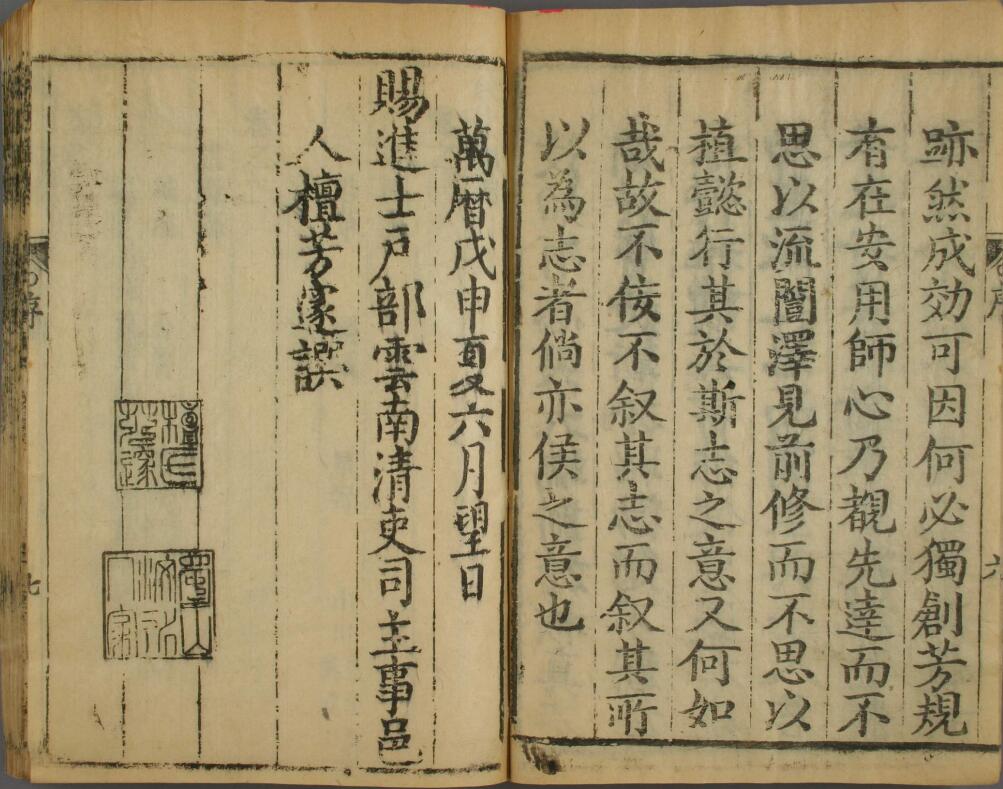 跡然成効可因何必獨創芳規
有在安用師心乃覩先達而不
思以流闓澤見前修而不思以
植懿行其於斯志之意又何如
哉故不佞不叙其志而叙其所
以為志者倘亦侯之意也
六
萬曆戊申夏六月望日
賜進士戶部雲南清吏司主事邑
人檀芳邃譔
序
七